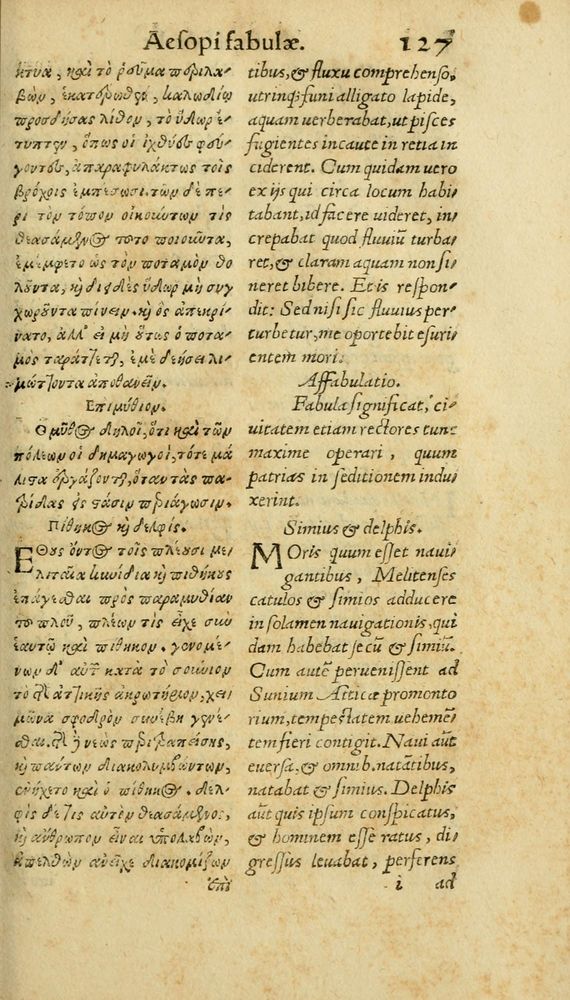 Aesopi fabulæ. 127
κτυα, καὶ τὸ ῥεῦμα περιλα-
βὼν, ἑκατέρωθεν, καλωδίῳ
προσδήσας λίθον, τὸ ὕδωρ ἔ-
τυπτεν, ὅπως οἱ ἰχθύες φεύ-
γοντες, ἀπαραφυλάκτως τοῖς
βρόχοις ἐμπέσωσι. τῶν δὲ πε-
ρὶ τὸν τόπον οἰκούντων τις
θεασάμενος τοῦτο ποιοῦντα,
ἐμέμφετο ὡς τὸν ποταμὸν θο-
λοῦντα, καὶ διειδὲς ὕδωρ μὴ συγ
χωροῦντα πίνειν. καὶ ὃς ἀπεκρί-
νατο, ἀλλ' εἰ μὴ οὕτως ὁ ποτα-
μὸς ταράττεται, ἐμὲ δεήσει λι-
μώττοντα ἀποθανεῖν.
Επιμύθιον.
Ὁ μῦθος δηλοῖ, ὅτι καὶ τῶν
πόλεων οἱ δημαγωγοὶ, τότε μά
λιστα ἐργάζονται, ὅταν τὰς πα-
τρίδας εἰς στάσιν περιάγωσιν.
Πίθηκος καὶ δελφίς.
ΕΘους ὄντος τοῖς πλέουσι με-
λιταῖα κυνίδια καὶ πιθήκους
ἐπάγεσθαι πρὸς παραμυθίαν
τοῦ πλοῦ, πλέων τις εἶχε σὺν
ἑαυτῷ καὶ πίθηκον. γενομέ-
νων δ' αὐτῶν κατὰ τὸ σούνιον
τὸ τῆς ἀττικῆς ἀκρωτήριον, χει-
μῶνα σφοδρὸν συνέβη γενέ-
σθαι. τῆς δὲ νεὼς περιτραπείσης,
καὶ πάντων διακολυμβώντων,
ἐνήχετο καὶ ὁ πίθηκος. δελ-
φὶς δέ τις αὐτὸν θεασάμενος,
καὶ ἄνθρωπον εἶναι ὑπολαβὼν,
ὑπελθὼν ἀνεῖχε διακομίζων
ἐπὶ
tibus, & fluxu comprehenso,
utrinq; funi alligato lapide,
aquam uerberabat, ut pisces
fugientes incaute in retia in
ciderent. Cum quidam uero
ex ijs qui circa locum habi-
tabant, id facere uideret, in-
crepabat quod fluuiũ turba-
ret, & claram aquam non si-
neret bibere. Et is respon-
dit: Sed nisi sic fluuius per-
turbetur, me oportebit esuri-
entem mori.
Affabulatio.
Fabula significat, ci-
uitatem etiam rectores tunc
maxime operari, quum
patrias in seditionem indu-
xerint.
Simius & delphis.
MOris quum esset naui-
gantibus, Melitenses
catulos & simios adducere
in solamen nauigationis, qui
dam habebat secũ & simiũ.
Cum autẽ peruenissent ad
Sunium Atticæ promonto
rium, tempestatem uehemẽ-
tem fieri contigit. Naui aũt
euersa, & omnib. natãtibus,
natabat & simius. Delphis
aũt quis ipsum conspicatus,
& hominem esse ratus, di-
gressus leuabat, perferens
i ad